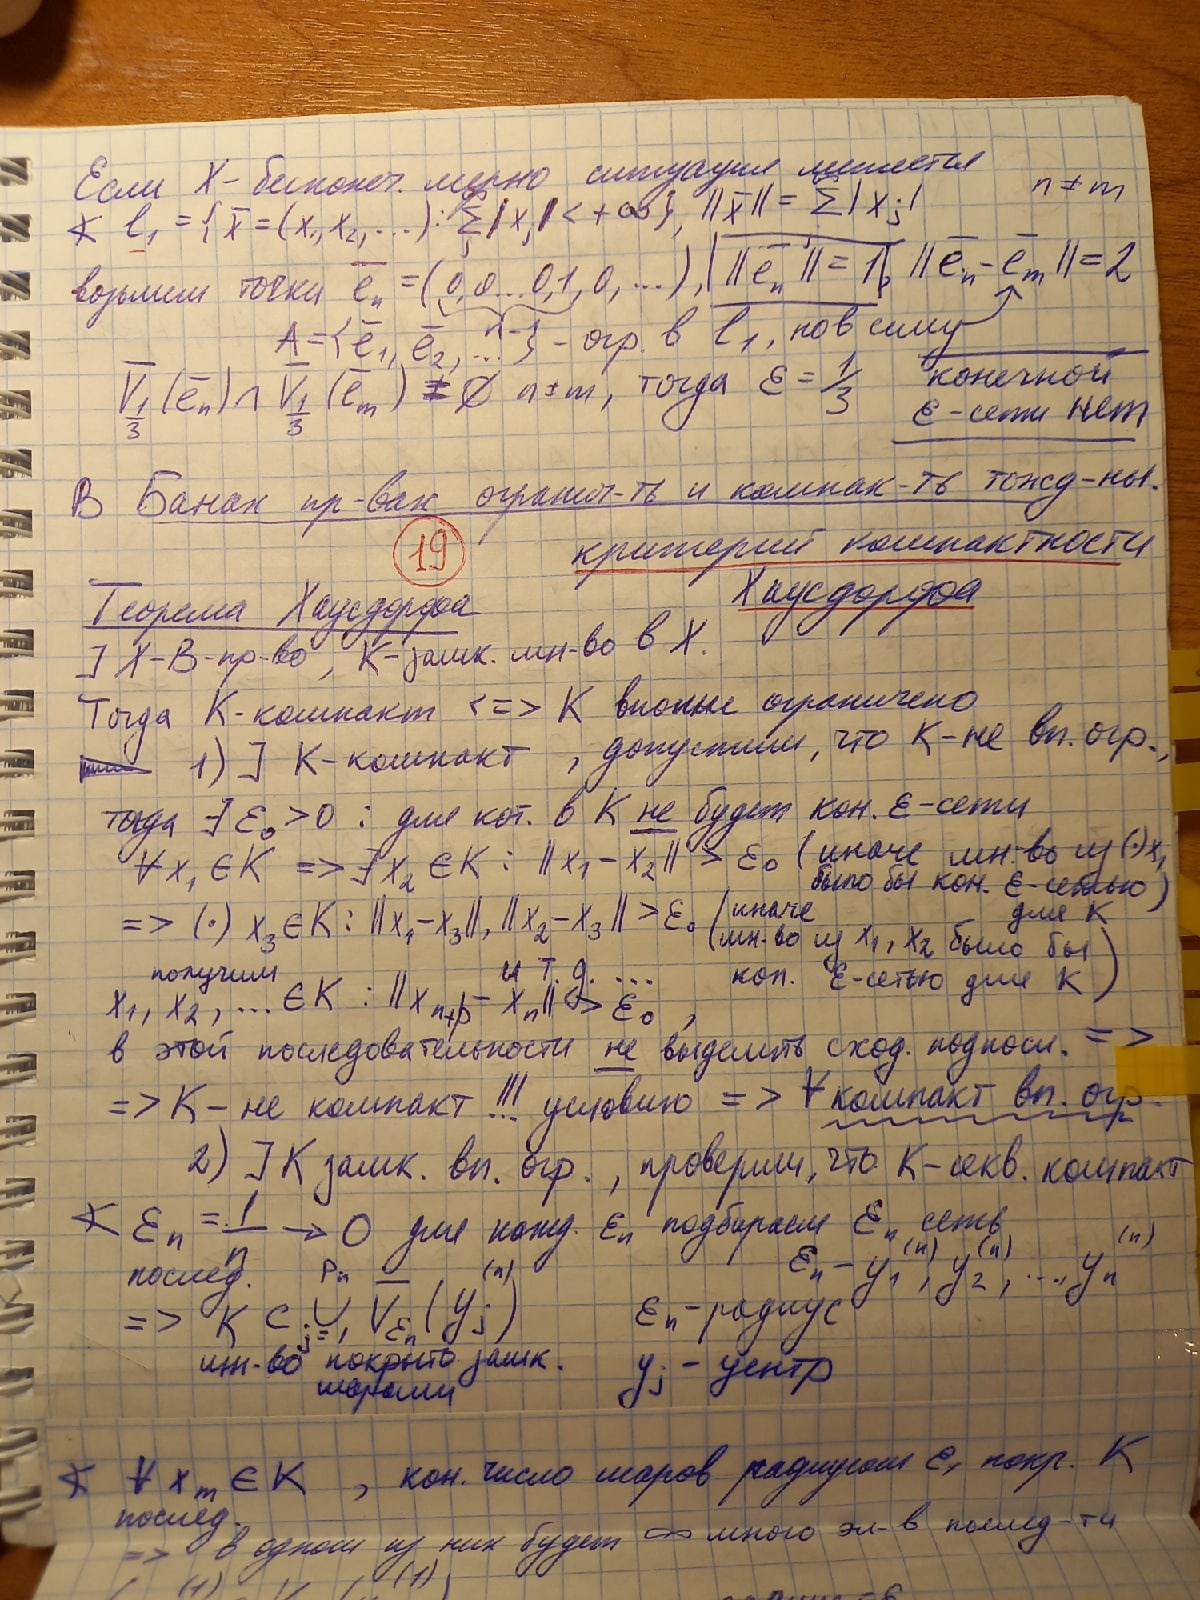 Если X - бесконеч. мерно ситуация меняется
∢ l₁ = {x̄ = (x₁, x₂, ...) : Σ|xⱼ| < +∞}, ||x̄|| = Σ|xⱼ| n ≠ m
возьмем точки ēₙ = (0, 0...0, 1, 0, ...), ||ēₙ|| = 1, ||ēₙ - ēₘ|| = 2
A = {ē₁, ē₂, ...} - огр. в l₁, но в силу
V̄_{1/3}(ēₙ) ∩ V̄_{1/3}(ēₘ) = ∅ n ≠ m, тогда ε = 1/3 конечной
ε-сети нет
В Банах пр-вах огранич-ть и компак-ть тожд-ны.
19 критерий компактности
Хаусдорфа
Теорема Хаусдорфа
] X - B - пр-во, K - замк. мн-во в X.
Тогда K - компакт <=> K вполне ограничено
1) ] K - компакт, допустим, что K - не вп. огр.,
тогда ∃ ε₀ > 0 : для кот. в K не будет кон. ε-сети
∀ x₁ ∈ K => ∃ x₂ ∈ K : ||x₁ - x₂|| > ε₀ (иначе мн-во из (·) x₁
было бы кон. ε-сетью)
для K
=> (·) x₃ ∈ K : ||x₁ - x₃||, ||x₂ - x₃|| > ε₀ (иначе
мн-во из x₁, x₂ было бы
кон. ε-сетью для K)
получим и т.д. ...
x₁, x₂, ... ∈ K : ||xₙ₊ₚ - xₙ|| > ε₀,
в этой последовательности не выделить сход. подпосл. =>
=> K - не компакт !!! условию => ∀ компакт вп. огр.
2) ] K замк. вп. огр., проверим, что K - секв. компакт
∢ εₙ = 1/n → 0 для кажд. εₙ подбираем εₙ сеть
послед. εₙ - y₁⁽ⁿ⁾, y₂⁽ⁿ⁾, ..., yₙ⁽ⁿ⁾
=> K ⊂ ∪ⱼ₌₁^{pₙ} V̄_{εₙ}(yⱼ⁽ⁿ⁾) εₙ - радиус
мн-во покрыто замк. yⱼ - центр
шарами
∢ ∀ xₘ ∈ K, кон. число шаров радиусом ε₁ покр. K
послед.
=> в одном из них будет ∞ много эл-в послед-ти